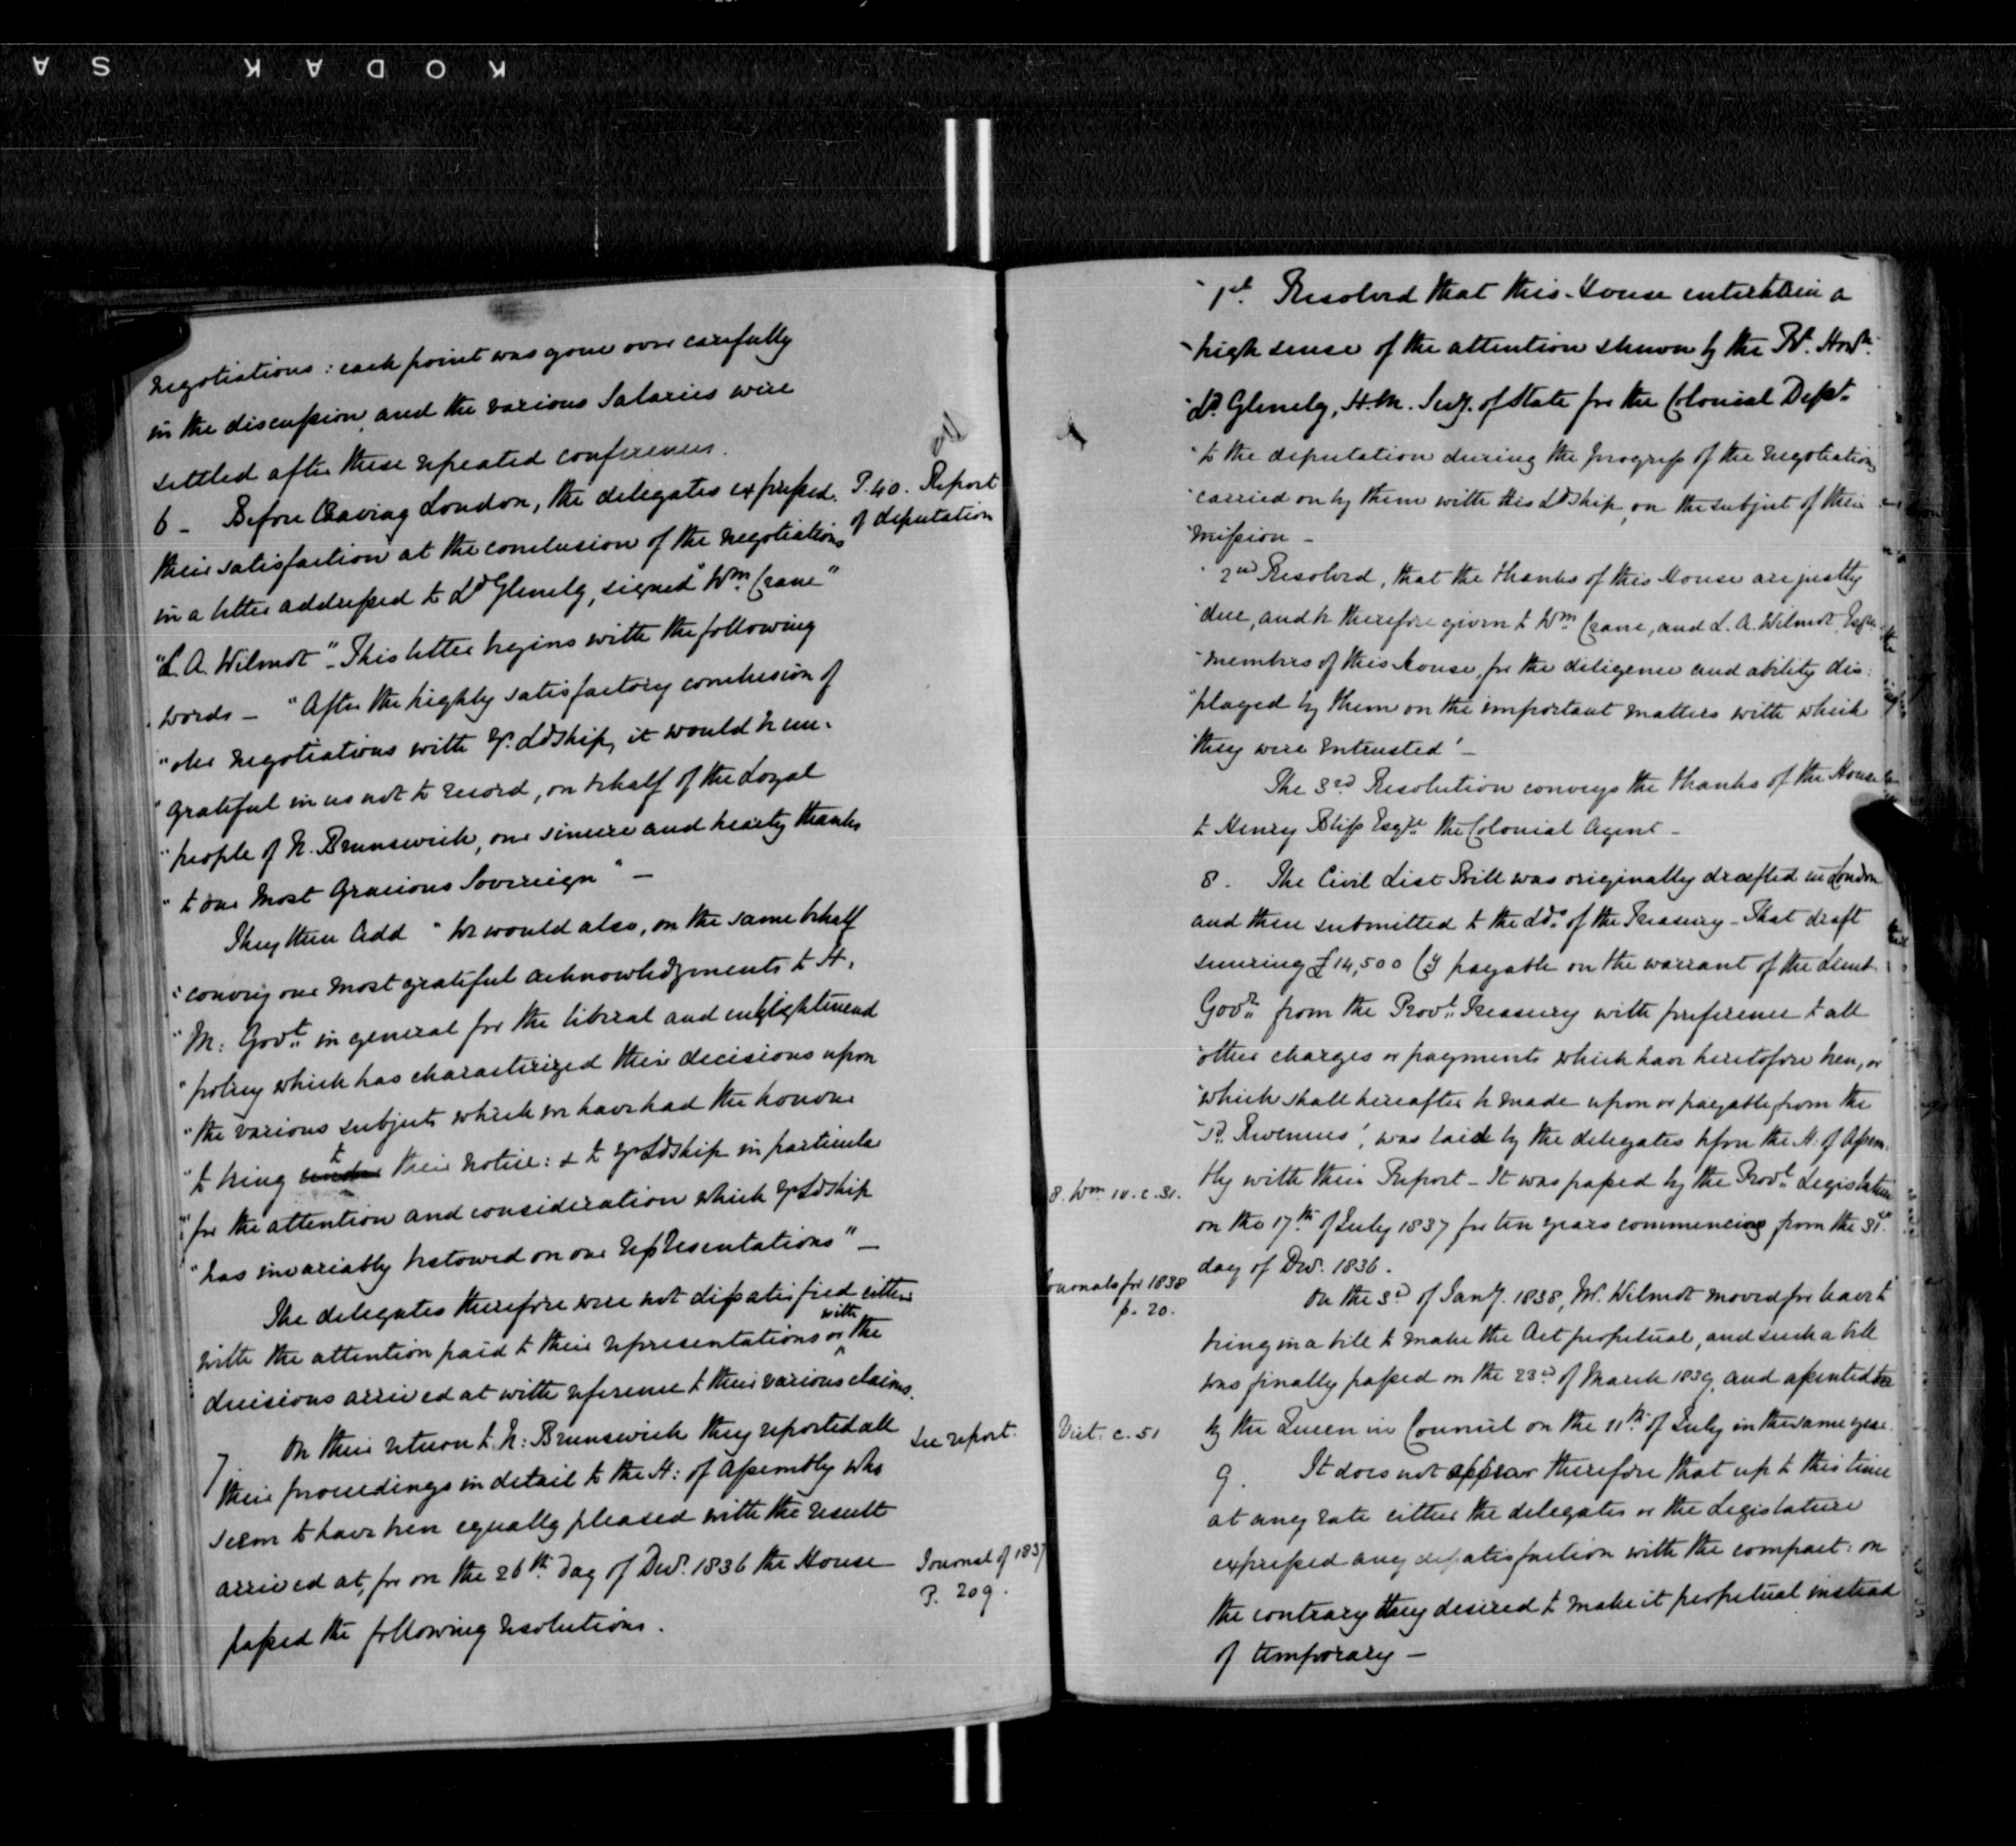 KODAK SA
negotiations : each point was gone over carefully
in the discussion, and the various Salaries were
settled after these repeated conferences.
6 - Before leaving London, the delegates expressed
P. 40. Report
of deputation
their satisfaction at the conclusion of the negotiations
in a letter addressed to Ld Glenelg, signed "Wm. Crane"
"L. A. Wilmot". This letter begins with the following
words - "After the highly satisfactory conclusion of
"our negotiations with Yr. Ldship, it would be un-
"grateful in us not to record, on behalf of the Loyal
"people of N. Brunswick, our sincere and hearty thanks
"to our Most Gracious Sovereign" -
They then add "We would also, on the same behalf
"convey our most grateful acknowledgments to H.
"M: Govt. in general for the liberal and enlightened
"policy which has characterized their decisions upon
"the various subjects which we have had the honour
"to bring under to their notice: & to yr Ldship in particular
"for the attention and consideration which yr Ldship
"has invariably bestowed on our representations" -
The delegates therefore were not dissatisfied either
with the attention paid to their representations or with the
decisions arrived at with reference to their various claims.
7 On their return to N: Brunswick they reported all
See report.
their proceedings in detail to the H: of Assembly who
seem to have been equally pleased with the result
arrived at, for on the 26th. day of Decr. 1836 the House
Journal of 1837
P. 209.
passed the following resolutions.
"1st. Resolved that this House entertain a
"high sense of the attention shewn by the Rt. Honble.
"Ld. Glenelg, H. M. Secy. of State for the Colonial Dept.
"to the deputation during the progress of the negotiations
"carried on by them with His Ldship, on the subject of their
"mission -
"2nd Resolved, that the thanks of this House are justly
"due, and be therefore given to Wm. Crane, and L. A. Wilmot, Esqres.
"members of this House, for the diligence and ability dis:
"played by them on the important matters with which
"they were entrusted' -
The 3rd. Resolution conveys the thanks of the House
to Henry Bliss Esqre. the Colonial Agent -
8. The Civil List Bill was originally drafted in London
and then submitted to the Lds. of the Treasury - That draft
securing £14,500 Cy payable on the warrant of the Lieut.
Govr. from the Provl. Treasury with preference to all
"other charges or payments which have heretofore been, or
"which shall hereafter be made upon or payable from the
"P. Revenues', was laid by the delegates before the H: of Assem-
bly with their Report - It was passed by the Provl. Legislature
8. Wm. IV. c. 31.
on the 17th. of July 1837 for ten years commencing from the 31st.
day of Decr. 1836.
Journals for 1838
p. 20.
On the 3d. of Jany. 1838, Mr. Wilmot moved for leave to
bring in a bill to make the Act perpetual, and such a bill
was finally passed on the 23d. of March 1839, and assented to
by the Queen in Council on the 11th. of July in the same year.
Vict: c. 51
9. It does not appear therefore that up to this time
at any rate either the delegates or the Legislature
expressed any dissatisfaction with the compact: on
the contrary they desired to make it perpetual instead
of temporary -